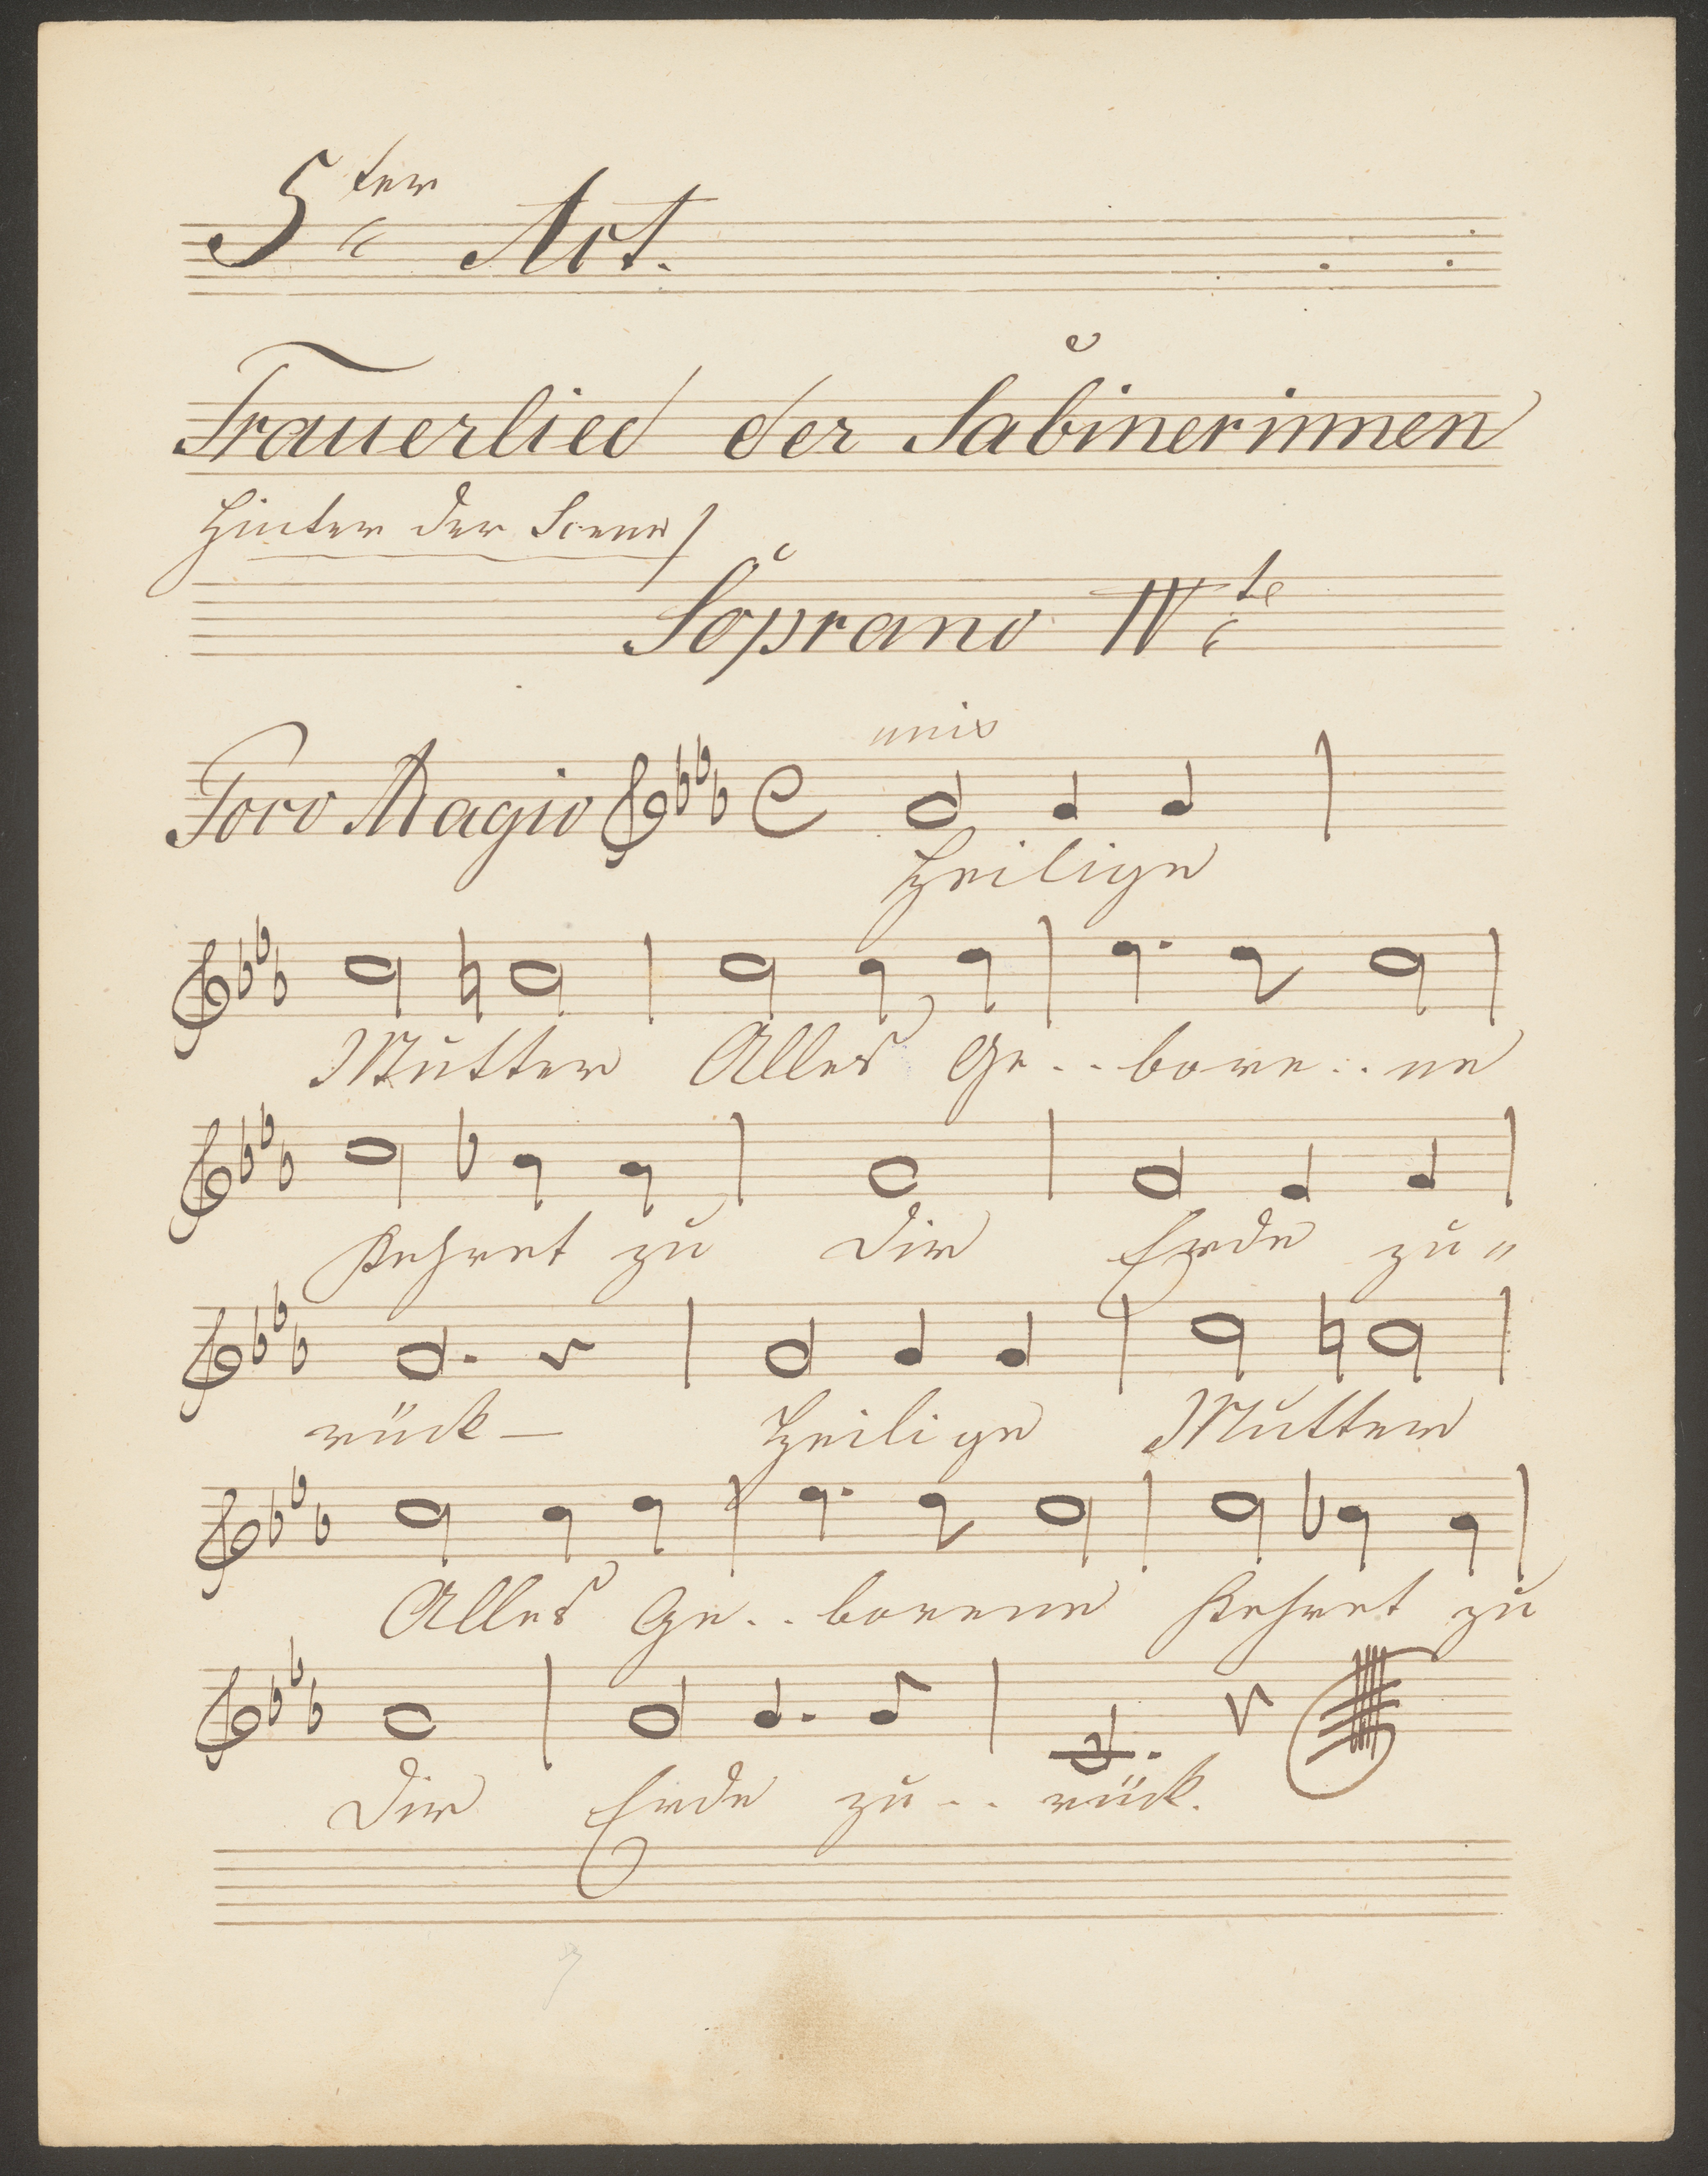 5ter Act.
Trauerlied der Sabinerinnen
Hinter der Scene /
Soprano IVte
unis
Poco Adagio
Heilige
Mutter Alles Ge.. bore.. ne
Kehret zu Dir Erde zu"
rück – Heilige Mutter
Alles Ge.. borene Kehret zu
Dir Erde zu.. rück.